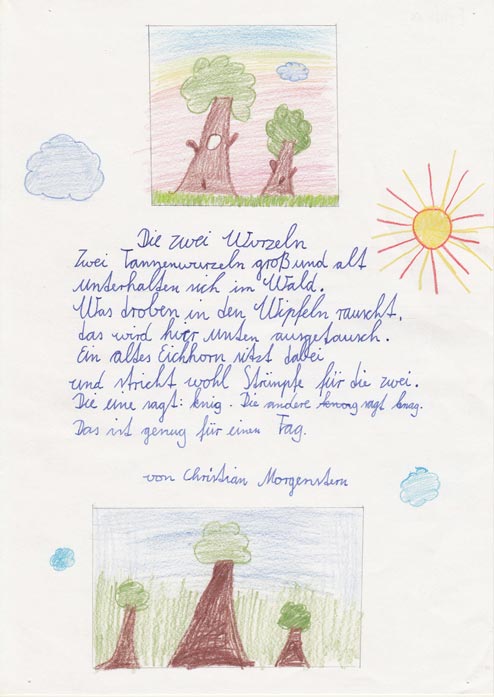 Die zwei Wurzeln
Zwei Tannenwurzeln groß und alt
unterhalten sich im Wald.
Was droben in den Wipfeln rauscht,
das wird hier unten ausgetausch.
Ein altes Eichhorn sitzt dabei
und strickt wohl Strümpfe für die zwei.
Die eine sagt: knig. Die andere sagt knag.
Das ist genug für einen Tag.
von Christian Morgenstern